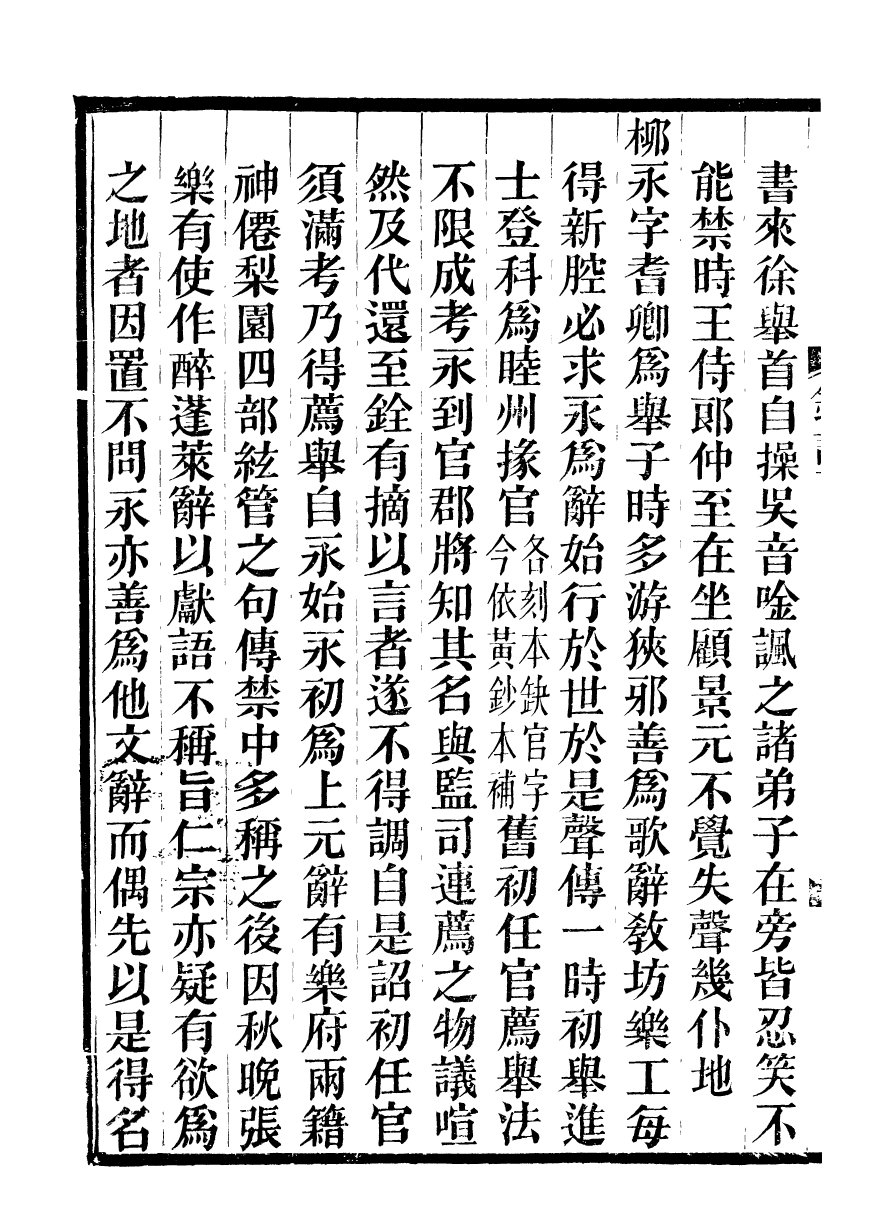 書來徐舉首自操吳音唫諷之諸弟子在旁皆忍笑不
能禁時王侍郎仲至在坐顧景元不覺失聲幾仆地
柳永字耆卿爲舉子時多游狹邪善爲歌辭敎坊樂工每
得新腔必求永爲辭始行於世於是聲傳一時初舉進
士登科爲睦州掾官各刻本缺官字今依黃鈔本補舊初任官薦舉法
不限成考永到官郡將知其名與監司連薦之物議喧
然及代還至銓有摘以言者遂不得調自是詔初任官
須滿考乃得薦舉自永始永初爲上元辭有樂府兩籍
神僊梨園四部絃管之句傳禁中多稱之後因秋晚張
樂有使作醉蓬萊辭以獻語不稱旨仁宗亦疑有欲爲
之地者因置不問永亦善爲他文辭而偶先以是得名